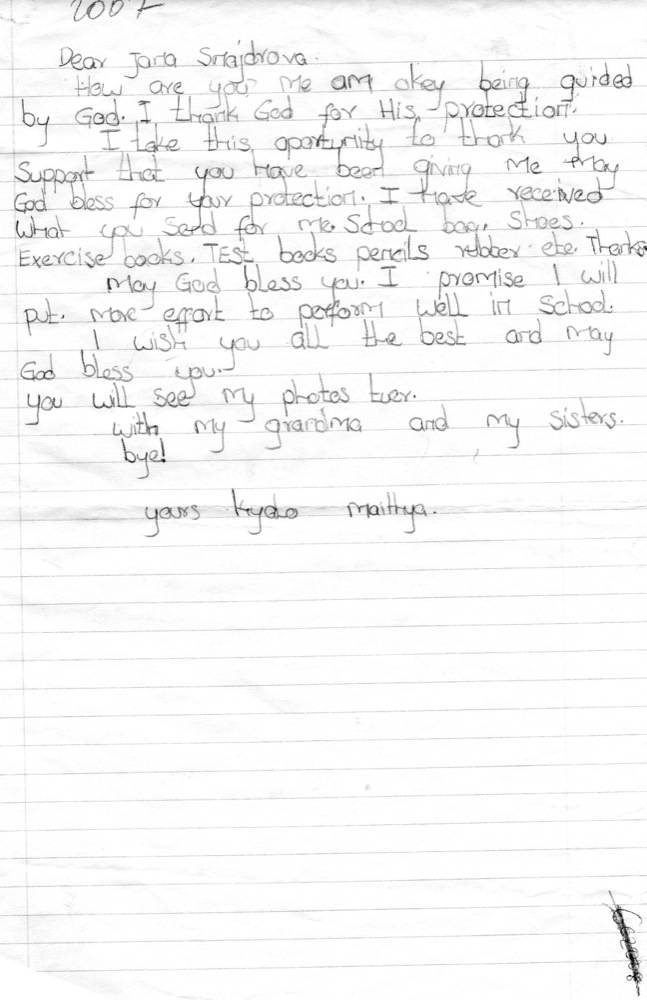 2007
Dear Jana Smajdrova.
How are you? Me am okey being guided
by God. I thank God for His protection.
I take this oportunity to thank you
Support that you Have been giving Me May
God bless for your protection. I Have received
What you Send for me. School bag, Shoes.
Exercise books. TEST books pencils rubber etc. Thanks
May God bless you. I promise I will
put. More effort to perform Well in School.
I wish you all the best and may
God bless you.
you will see my photos
with my grandma and my sisters.
bye!
yours Kyalo Maithya.